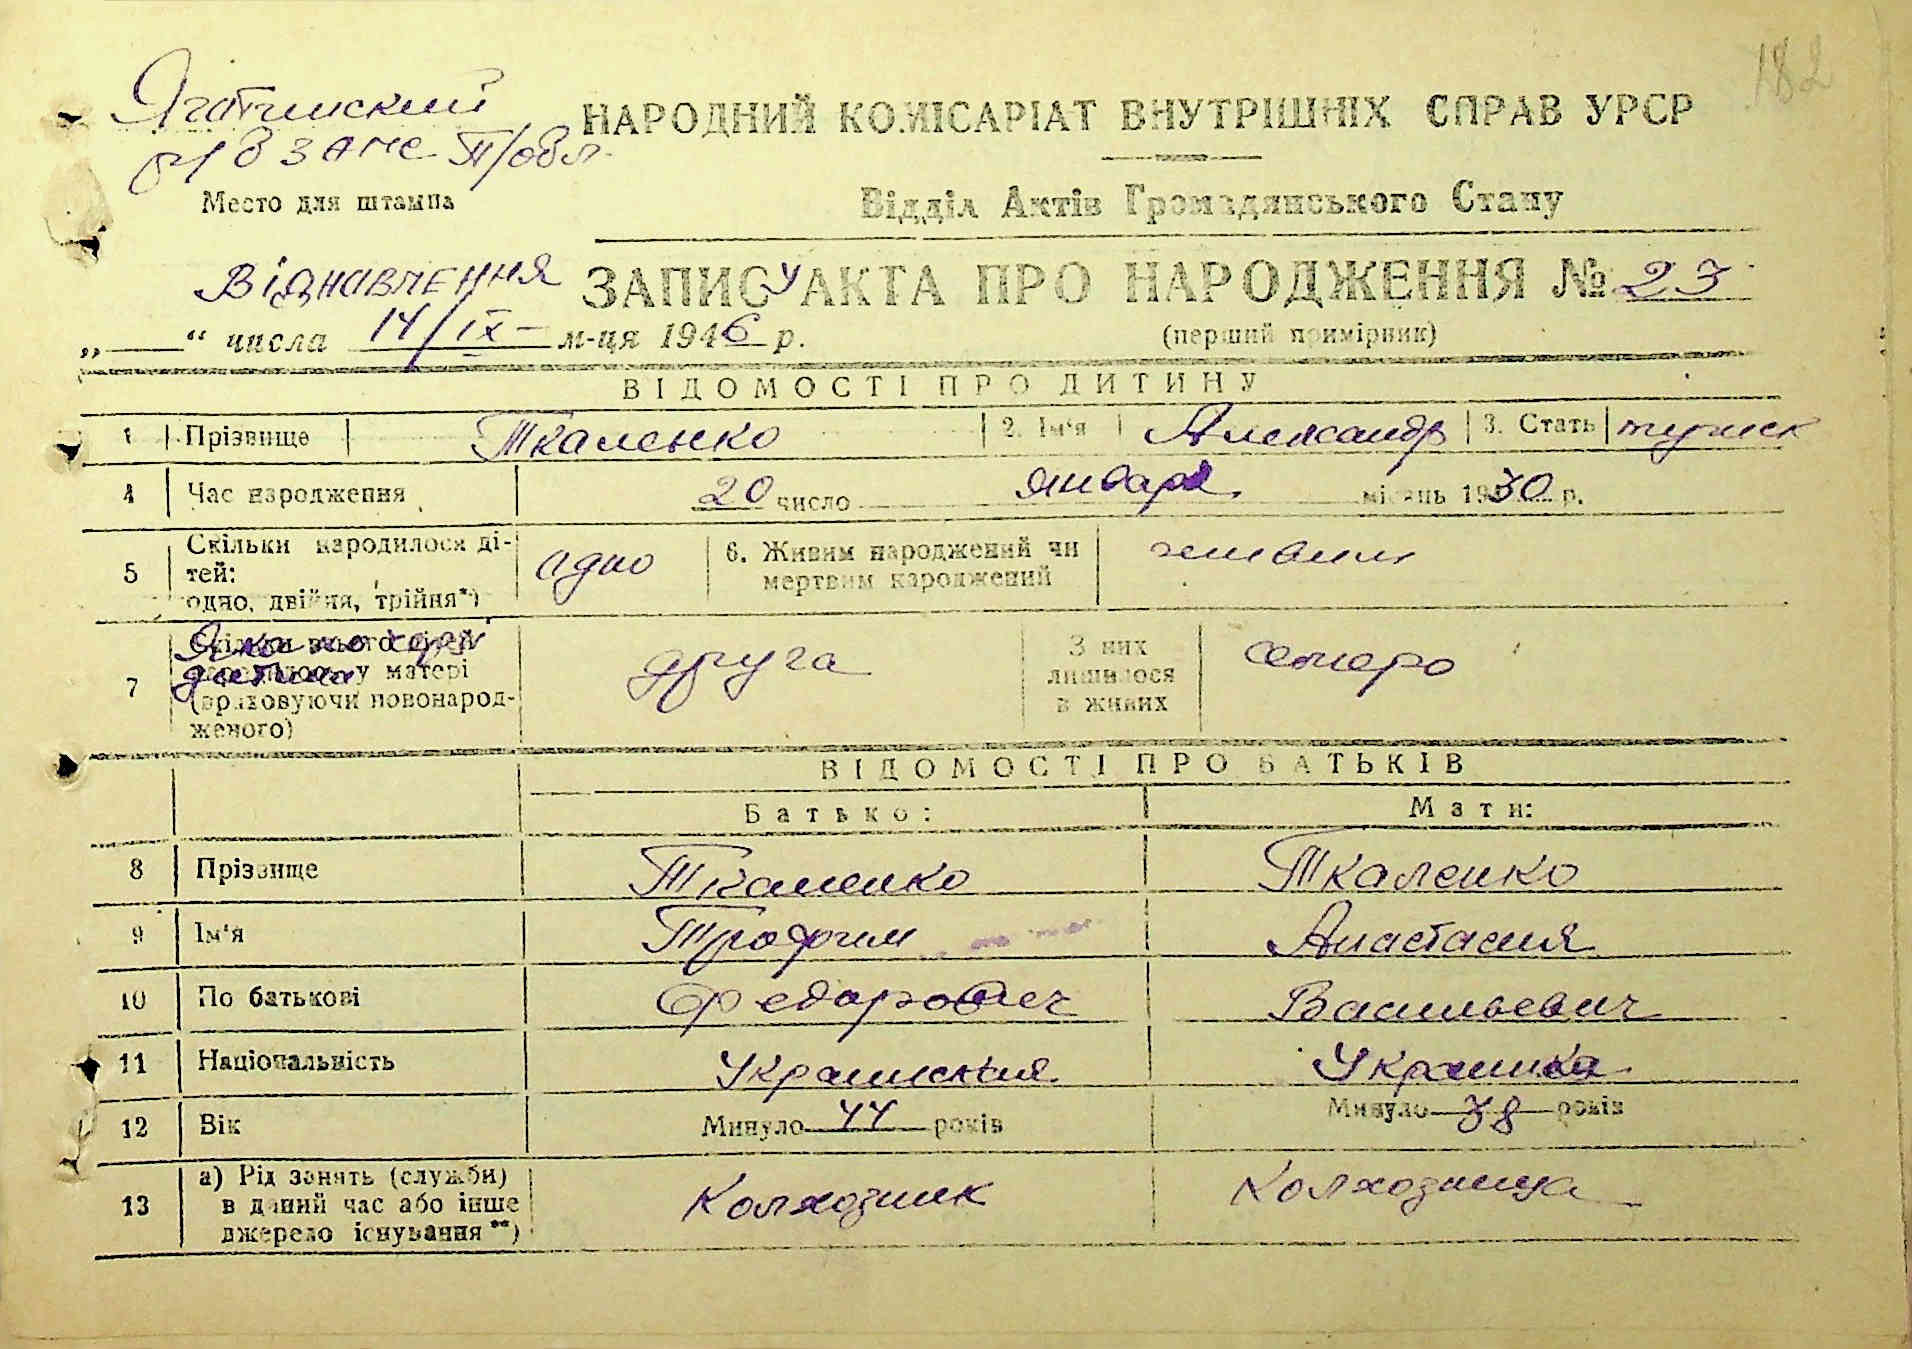 182
Яготинский
р/в загс П/обл.
НАРОДНИЙ КОМІСАРІАТ ВНУТРІШНІХ СПРАВ УРСР
Место для штампа
Відділ Актів Громадянського Стану
Відновлення ЗАПИСУ АКТА ПРО НАРОДЖЕННЯ № 23
„ “ числа 14/IX м-ця 1946 р. (перший примірник)
ВІДОМОСТІ ПРО ДИТИНУ
1 Прізвище Ткаленко 2. Ім'я Александр 3. Стать мужеск
4 Час народження 20 число января місяць 1930 р.
5 Скільки народилося ді-
тей:
одно, двійня, трійня*)
одно
6. Живим народжений чи
мертвим народжений
живим
7 Скільки всього дітей
народилось у матері
(враховуючи новонарод-
женого)
Яка по
дитина
друга
З них
лишилося
в живих
семеро
ВІДОМОСТІ ПРО БАТЬКІВ
Батько: Мати:
8 Прізвище Ткаленко Ткаленко
9 Ім'я Трофим Анастасия
10 По батькові Федарович Васильевич
11 Національність Украинския Украинка
12 Вік Минуло 44 років Минуло 38 років
13 а) Рід занять (служби)
в даний час або інше
джерело існування **)
Колхозник Колхозница